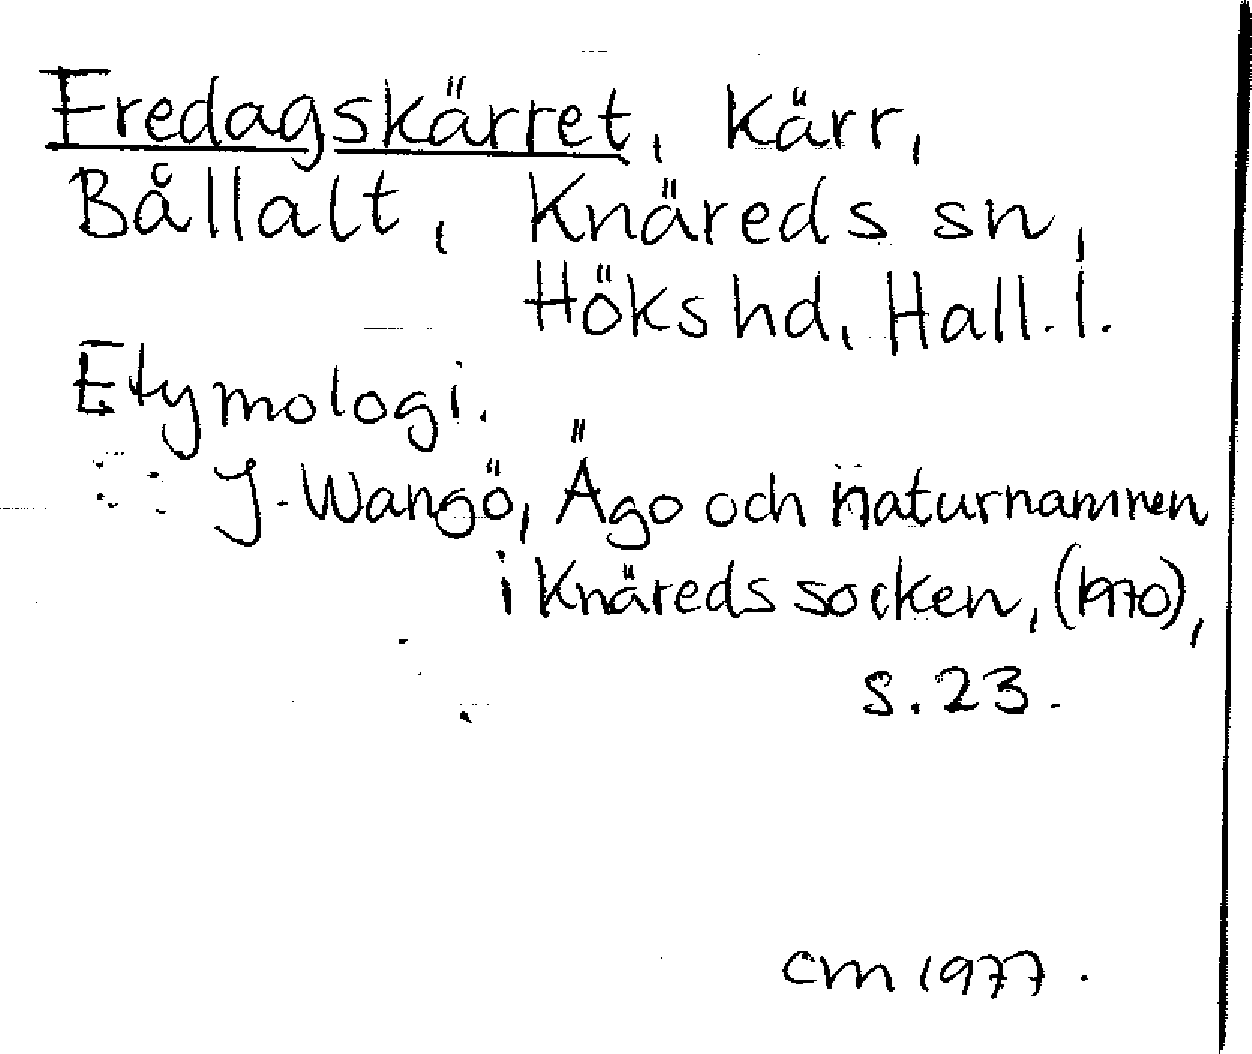 Fredagskärret, Kärr,
Bållalt, Knäreds sn,
Höks hd, Hall. l.
Etymologi.
J. Wangö, Ägo och naturnamnen
i Knäreds socken, (1970),
s. 23.
CM 1977.